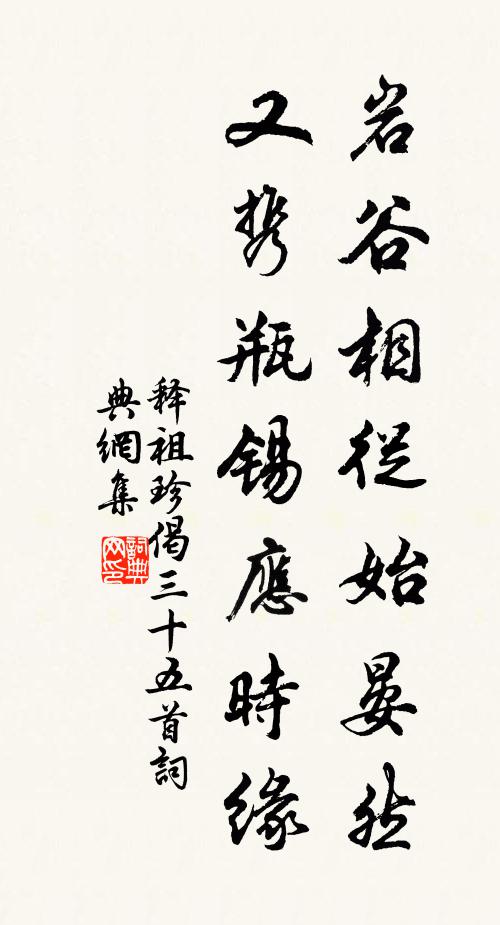 岩谷相從始晏然
又携瓶錫應時緣
释祖珍偈三十五首詞
典網集
詞典網印